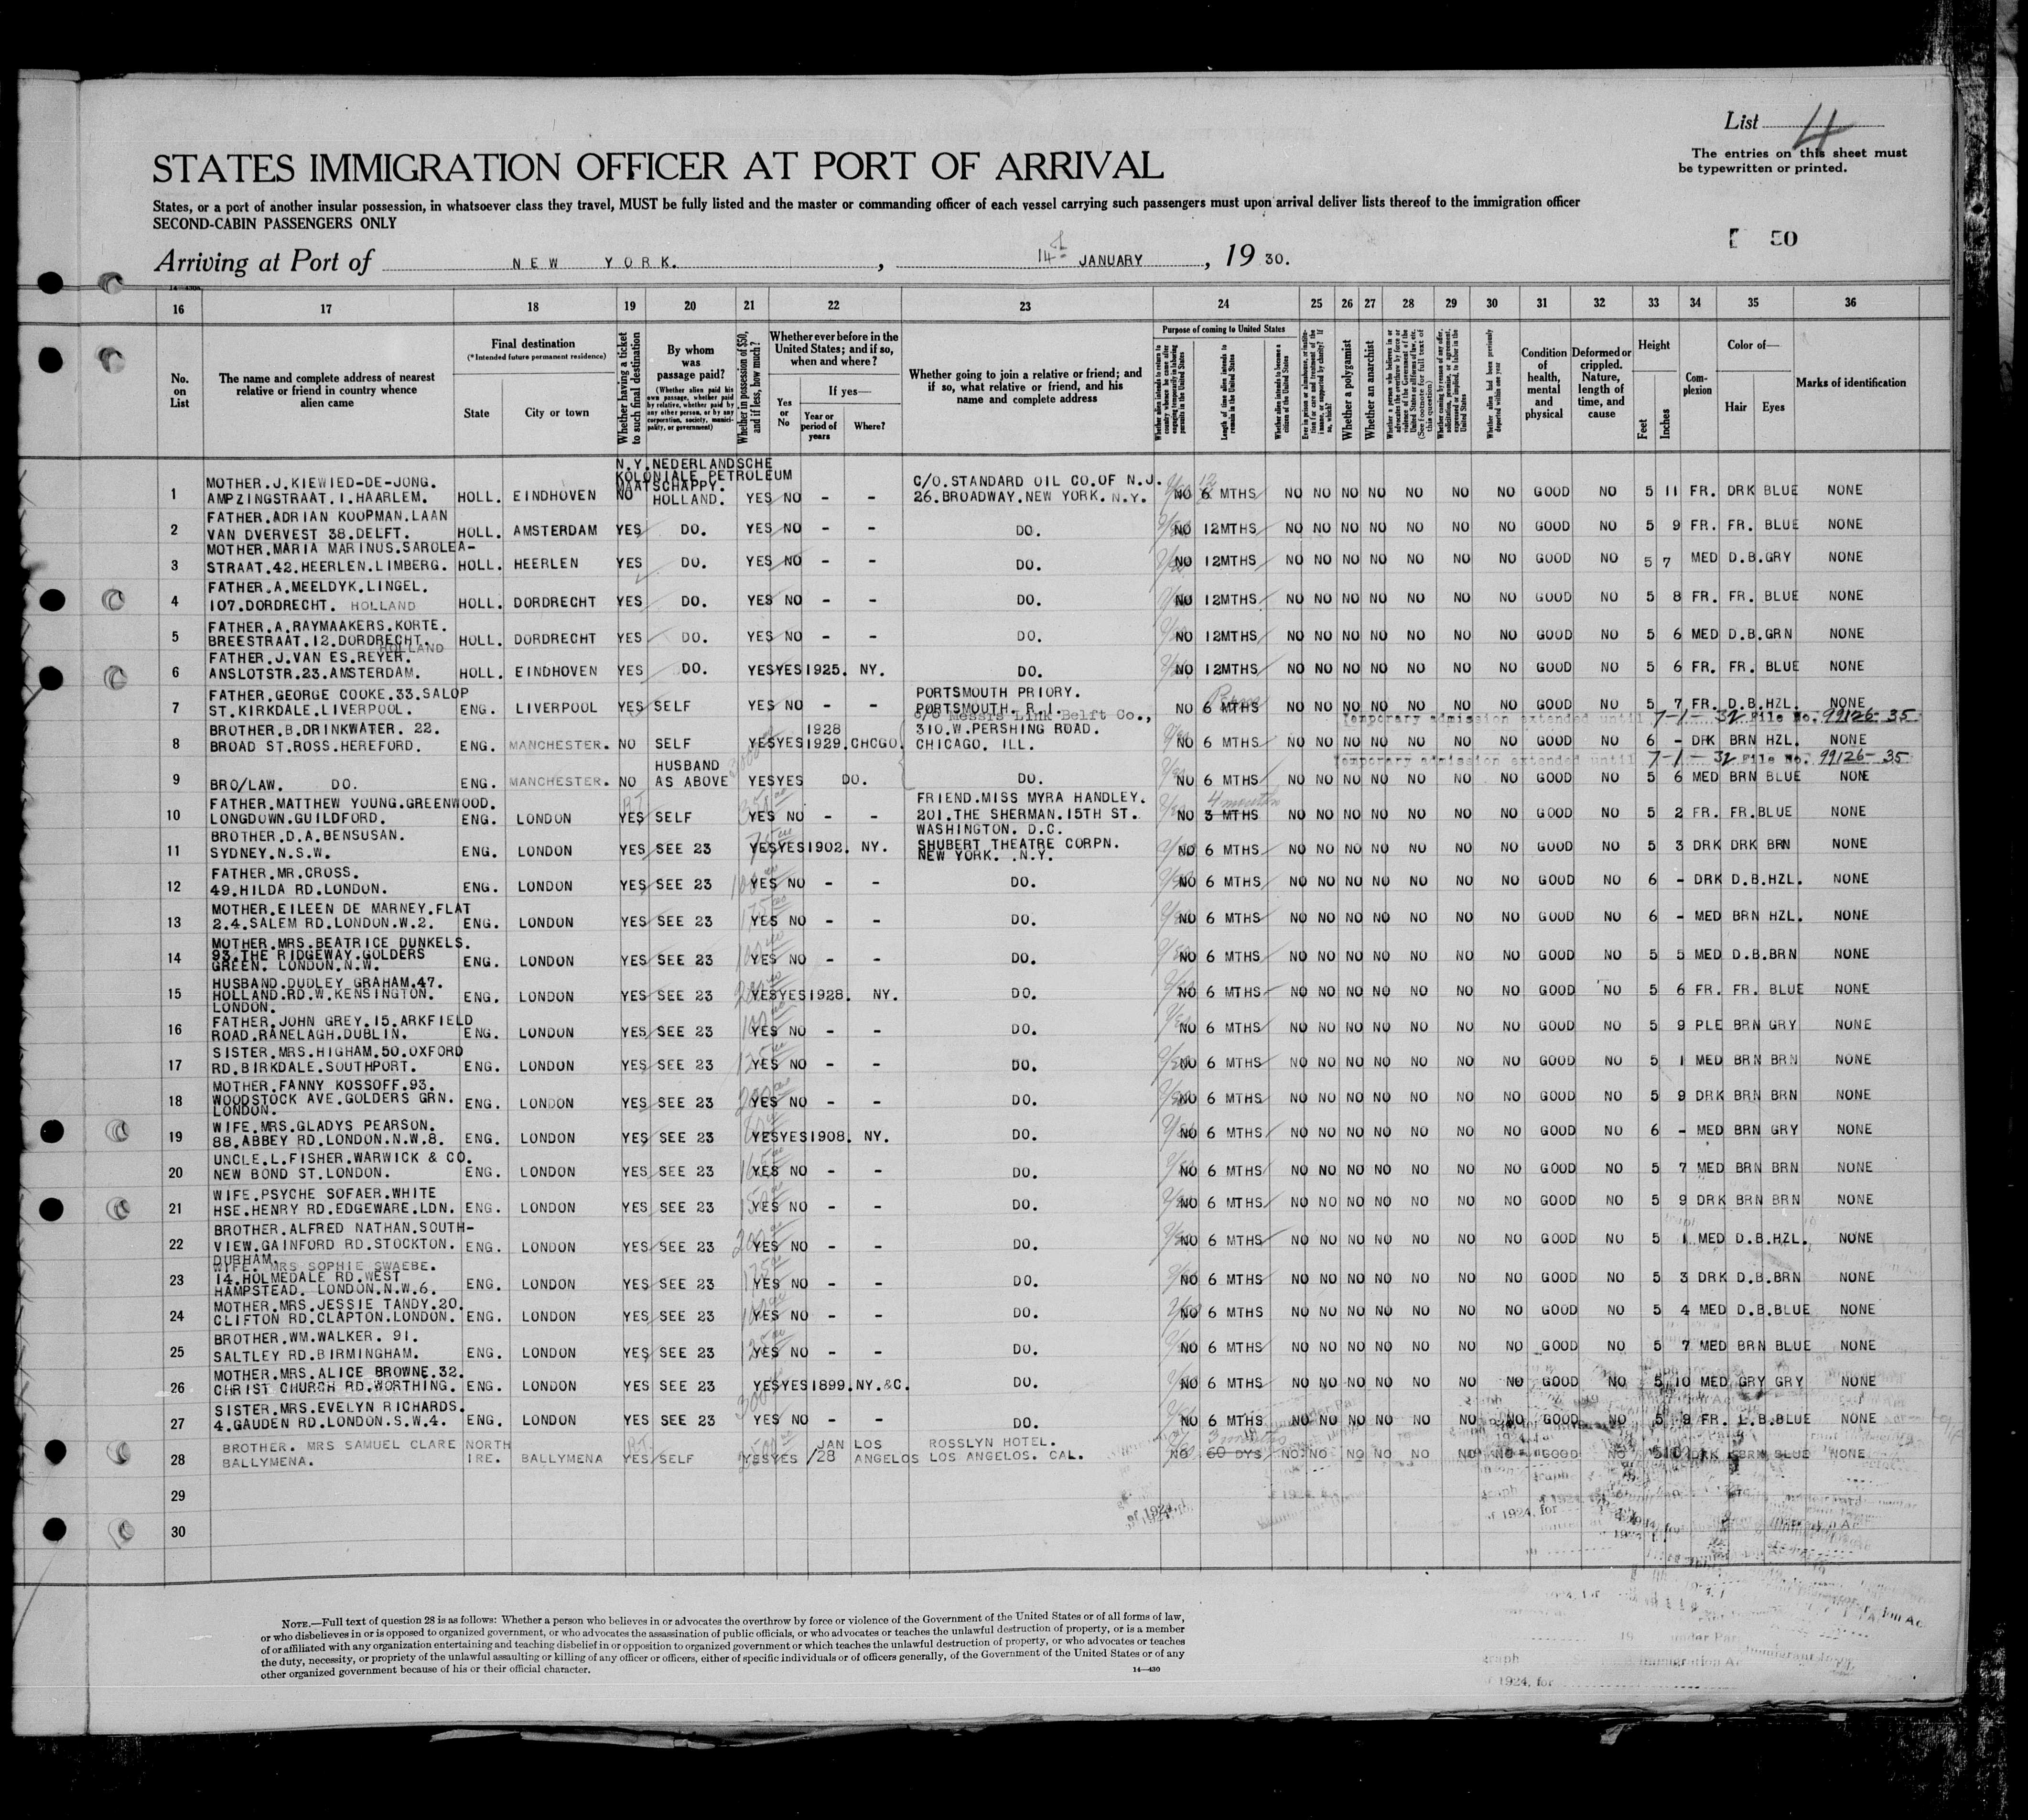 List 4
The entries on this sheet must
be typewritten or printed.
STATES IMMIGRATION OFFICER AT PORT OF ARRIVAL
States, or a port of another insular possession, in whatsoever class they travel, MUST be fully listed and the master or commanding officer of each vessel carrying such passengers must upon arrival deliver lists thereof to the immigration officer
SECOND-CABIN PASSENGERS ONLY
50
Arriving at Port of NEW YORK. , 14th JANUARY , 19 30.
16 17 18 19 20 21 22 23 24 25 26 27 28 29 30 31 32 33 34 35 36
No. on List
The name and complete address of nearest relative or friend in country whence alien came
Final destination
(*Intended future permanent residence)
State
City or town
Whether having a ticket to such final destination
By whom was passage paid?
(Whether alien paid his own passage, whether paid by relative, whether paid by any other person, or by any corporation, society, municipality, or government)
Whether in possession of $50, and if less, how much?
Whether ever before in the United States; and if so, when and where?
Yes or No
If yes—
Year or period of years
Where?
Whether going to join a relative or friend; and if so, what relative or friend, and his name and complete address
Purpose of coming to United States
Whether alien intends to return to country whence he came after engaging temporarily in laboring pursuits in the United States
Length of time alien intends to remain in the United States
Whether alien intends to become a citizen of the United States
Whether a polygamist
Whether an anarchist
Condition of health, mental and physical
Deformed or crippled. Nature, length of time, and cause
Height
Feet
Inches
Complexion
Color of—
Hair
Eyes
Marks of identification
N.Y.NEDERLANDSCHE
KOLONIALE PETROLEUM
MAATSCHAPPY.
1 MOTHER.J.KIEWIED-DE-JONG. AMPZINGSTRAAT.1.HAARLEM. HOLL. EINDHOVEN NO HOLLAND. YES NO - - C/O.STANDARD OIL CO.OF N.J. 26.BROADWAY.NEW YORK. N.Y. NO 6 12 MTHS NO NO NO NO NO NO NO GOOD NO 5 11 FR. DRK BLUE NONE
2 FATHER.ADRIAN KOOPMAN.LAAN VAN DVERVEST 38.DELFT. HOLL. AMSTERDAM YES DO. YES NO - - DO. NO 12MTHS NO NO NO NO NO NO NO GOOD NO 5 9 FR. FR. BLUE NONE
3 MOTHER.MARIA MARINUS.SAROLEA-STRAAT.42.HEERLEN.LIMBERG. HOLL. HEERLEN YES DO. YES NO - - DO. NO 12MTHS NO NO NO NO NO NO NO GOOD NO 5 7 MED D.B.GRY NONE
4 FATHER.A.MEELDYK.LINGEL. 107.DORDRECHT. HOLLAND HOLL. DORDRECHT YES DO. YES NO - - DO. NO 12MTHS NO NO NO NO NO NO NO GOOD NO 5 8 FR. FR. BLUE NONE
5 FATHER.A.RAYMAAKERS.KORTE. BREESTRAAT.12.DORDRECHT. HOLLAND HOLL. DORDRECHT YES DO. YES NO - - DO. NO 12MTHS NO NO NO NO NO NO NO GOOD NO 5 6 MED D.B.GRN NONE
6 FATHER.J.VAN ES.REYER. ANSLOTSTR.23.AMSTERDAM. HOLL. EINDHOVEN YES DO. YES YES 1925. NY. DO. NO 12MTHS NO NO NO NO NO NO NO GOOD NO 5 6 FR. FR. BLUE NONE
7 FATHER.GEORGE COOKE.33.SALOP ST.KIRKDALE.LIVERPOOL. ENG. LIVERPOOL YES SELF YES NO - - PORTSMOUTH PRIORY. PORTSMOUTH. R.I. NO 6 MTHS NO NO NO NO NO NO NO GOOD NO 5 7 FR. D.B.HZL. NONE
c/o Messrs Link Belft Co., Temporary admission extended until 7-1-32 File No. 99126-35
8 BROTHER.B.DRINKWATER. 22. BROAD ST.ROSS.HEREFORD. ENG. MANCHESTER. NO SELF YES YES 1928 1929. CHCGO. 310.W.PERSHING ROAD. CHICAGO. ILL. NO 6 MTHS NO NO NO NO NO NO NO GOOD NO 6 - DRK BRN HZL. NONE
Temporary admission extended until 7-1-32 File No. 99126-35
9 BRO/LAW. DO. ENG. MANCHESTER. NO HUSBAND AS ABOVE YES YES DO. DO. NO 6 MTHS NO NO NO NO NO NO NO GOOD NO 5 6 MED BRN BLUE NONE
10 FATHER.MATTHEW YOUNG.GREENWOOD. LONGDOWN.GUILDFORD. ENG. LONDON YES SELF YES NO - - FRIEND.MISS MYRA HANDLEY. 201.THE SHERMAN.15TH ST. WASHINGTON. D.C. NO 3 MTHS 4 months NO NO NO NO NO NO NO GOOD NO 5 2 FR. FR.BLUE NONE
11 BROTHER.D.A.BENSUSAN. SYDNEY.N.S.W. ENG. LONDON YES SEE 23 YES YES 1902. NY. SHUBERT THEATRE CORPN. NEW YORK. .N.Y. NO 6 MTHS NO NO NO NO NO NO NO GOOD NO 5 3 DRK DRK BRN NONE
12 FATHER.MR.CROSS. 49.HILDA RD.LONDON. ENG. LONDON YES SEE 23 YES NO - - DO. NO 6 MTHS NO NO NO NO NO NO NO GOOD NO 6 - DRK D.B.HZL. NONE
13 MOTHER.EILEEN DE MARNEY.FLAT 2.4.SALEM RD.LONDON.W.2. ENG. LONDON YES SEE 23 YES NO - - DO. NO 6 MTHS NO NO NO NO NO NO NO GOOD NO 6 - MED BRN HZL. NONE
14 MOTHER.MRS.BEATRICE DUNKELS. 93.THE RIDGEWAY.GOLDERS GREEN. LONDON.N.W. ENG. LONDON YES SEE 23 YES NO - - DO. NO 6 MTHS NO NO NO NO NO NO NO GOOD NO 5 5 MED D.B.BRN NONE
15 HUSBAND.DUDLEY GRAHAM.47. HOLLAND.RD.W.KENSINGTON. LONDON. ENG. LONDON YES SEE 23 YES YES 1928. NY. DO. NO 6 MTHS NO NO NO NO NO NO NO GOOD NO 5 6 FR. FR. BLUE NONE
16 FATHER.JOHN GREY.15.ARKFIELD ROAD.RANELAGH.DUBLIN. ENG. LONDON YES SEE 23 YES NO - - DO. NO 6 MTHS NO NO NO NO NO NO NO GOOD NO 5 9 PLE BRN GRY NONE
17 SISTER.MRS.HIGHAM.50.OXFORD RD.BIRKDALE.SOUTHPORT. ENG. LONDON YES SEE 23 YES NO - - DO. NO 6 MTHS NO NO NO NO NO NO NO GOOD NO 5 1 MED BRN BRN NONE
18 MOTHER.FANNY KOSSOFF.93. WOODSTOCK AVE.GOLDERS GRN. LONDON. ENG. LONDON YES SEE 23 YES NO - - DO. NO 6 MTHS NO NO NO NO NO NO NO GOOD NO 5 9 DRK BRN BRN NONE
19 WIFE.MRS.GLADYS PEARSON. 88.ABBEY RD.LONDON.N.W.8. ENG. LONDON YES SEE 23 YES YES 1908. NY. DO. NO 6 MTHS NO NO NO NO NO NO NO GOOD NO 6 - MED BRN GRY NONE
20 UNCLE.L.FISHER.WARWICK & CO. NEW BOND ST.LONDON. ENG. LONDON YES SEE 23 YES NO - - DO. NO 6 MTHS NO NO NO NO NO NO NO GOOD NO 5 7 MED BRN BRN NONE
21 WIFE.PSYCHE SOFAER.WHITE HSE.HENRY RD.EDGEWARE.LDN. ENG. LONDON YES SEE 23 YES NO - - DO. NO 6 MTHS NO NO NO NO NO NO NO GOOD NO 5 9 DRK BRN BRN NONE
22 BROTHER.ALFRED NATHAN.SOUTH-VIEW.GAINFORD RD.STOCKTON. DURHAM. ENG. LONDON YES SEE 23 YES NO - - DO. NO 6 MTHS NO NO NO NO NO NO NO GOOD NO 5 1 MED D.B.HZL. NONE
23 WIFE. MRS SOPHIE SWAEBE. 14.HOLMEDALE RD.WEST HAMPSTEAD. LONDON.N.W.6. ENG. LONDON YES SEE 23 YES NO - - DO. NO 6 MTHS NO NO NO NO NO NO NO GOOD NO 5 3 DRK D.B.BRN NONE
24 MOTHER.MRS.JESSIE TANDY.20. CLIFTON RD.CLAPTON.LONDON. ENG. LONDON YES SEE 23 YES NO - - DO. NO 6 MTHS NO NO NO NO NO NO NO GOOD NO 5 4 MED D.B.BLUE NONE
25 BROTHER.WM.WALKER. 91. SALTLEY RD.BIRMINGHAM. ENG. LONDON YES SEE 23 YES NO - - DO. NO 6 MTHS NO NO NO NO NO NO NO GOOD NO 5 7 MED BRN BLUE NONE
26 MOTHER.MRS.ALICE BROWNE.32. CHRIST CHURCH RD.WORTHING. ENG. LONDON YES SEE 23 YES YES 1899. NY.&C. DO. NO 6 MTHS NO NO NO NO NO NO NO GOOD NO 5 10 MED GRY GRY NONE
27 SISTER.MRS.EVELYN RICHARDS. 4.GAUDEN RD.LONDON.S.W.4. ENG. LONDON YES SEE 23 YES NO - - DO. NO 6 MTHS NO NO NO NO NO NO NO GOOD NO 5 9 FR. L.B.BLUE NONE
28 BROTHER. MRS SAMUEL CLARE BALLYMENA. NORTH IRE. BALLYMENA YES SELF YES YES JAN /28 LOS ANGELOS ROSSLYN HOTEL. LOS ANGELOS. CAL. NO 60 DYS 3 months NO NO NO NO NO NO NO GOOD NO 5 10 DRK BRN BLUE NONE
29
30
NOTE.—Full text of question 28 is as follows: Whether a person who believes in or advocates the overthrow by force or violence of the Government of the United States or of all forms of law,
or who disbelieves in or is opposed to organized government, or who advocates the assassination of public officials, or who advocates or teaches the unlawful destruction of property, or is a member
of or affiliated with any organization entertaining and teaching disbelief in or opposition to organized government or which teaches the unlawful destruction of property, or who advocates or teaches
the duty, necessity, or propriety of the unlawful assaulting or killing of any officer or officers, either of specific individuals or of officers generally, of the Government of the United States or of any
other organized government because of his or their official character.
14—430